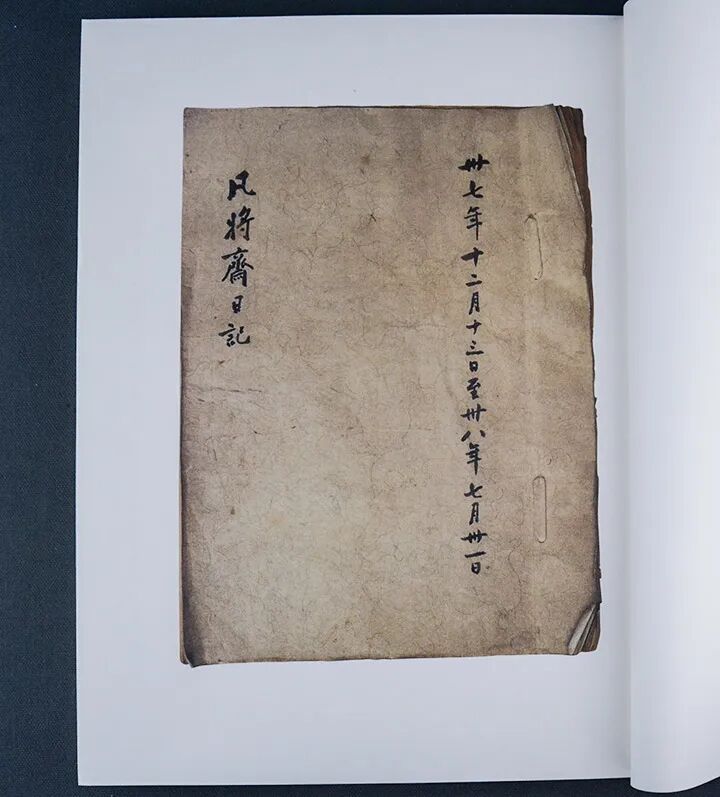 卅七年十二月十三日至卅八年七月卅一日
凡将齋日記